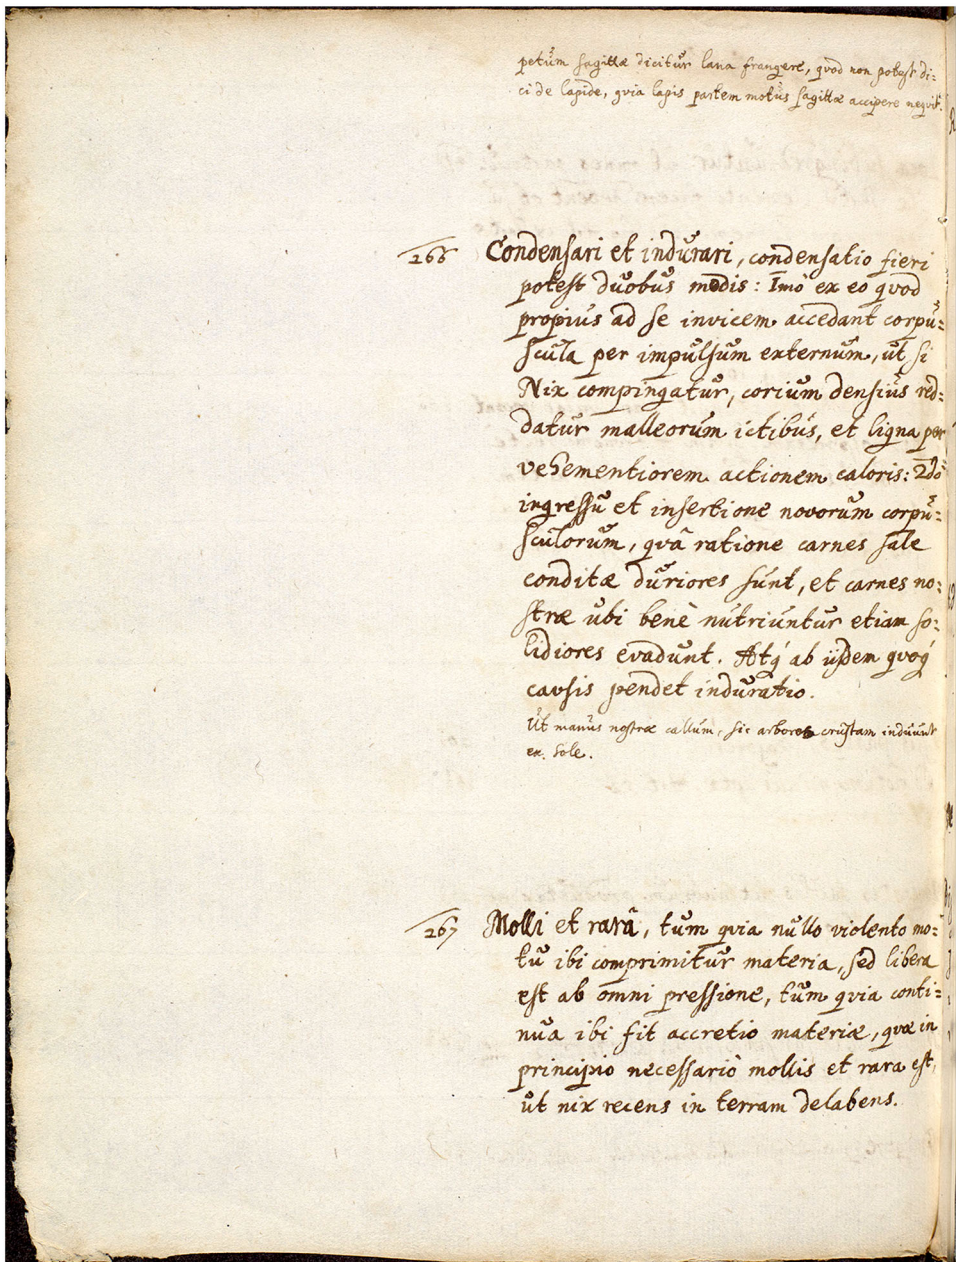 petum sagittæ dicitur lana frangere, quod non potest di:
ci de lapide, quia lapis partem motus sagittæ accipere nequit.
266 Condensari et indurari, condensatio fieri
potest duobus modis: Imò ex eo quod
propius ad se invicem accedant corpu:
scula per impulsum externum, ut si
Nix compingatur, corium densius red:
datur malleorum ictibus, et ligna per
vehementiorem actionem caloris: 2dò
ingressu et insertione novorum corpu:
sculorum, quâ ratione carnes sale
conditæ duriores sunt, et carnes no:
stræ ubi benè nutriuntur etiam so:
lidiores evadunt. Atq́ ab ijsdem quoq́
causis pendet induratio.
Ut manus nostræ callum, sic arbores crustam induunt
ex sole.
267 Molli et rarâ, tum quia nullo violento mo:
tu ibi comprimitur materia, sed libera
est ab omni pressione, tum quia conti:
nua ibi fit accretio materiæ, quæ in
principio necessariò mollis et rara est,
ut nix recens in terram delabens.